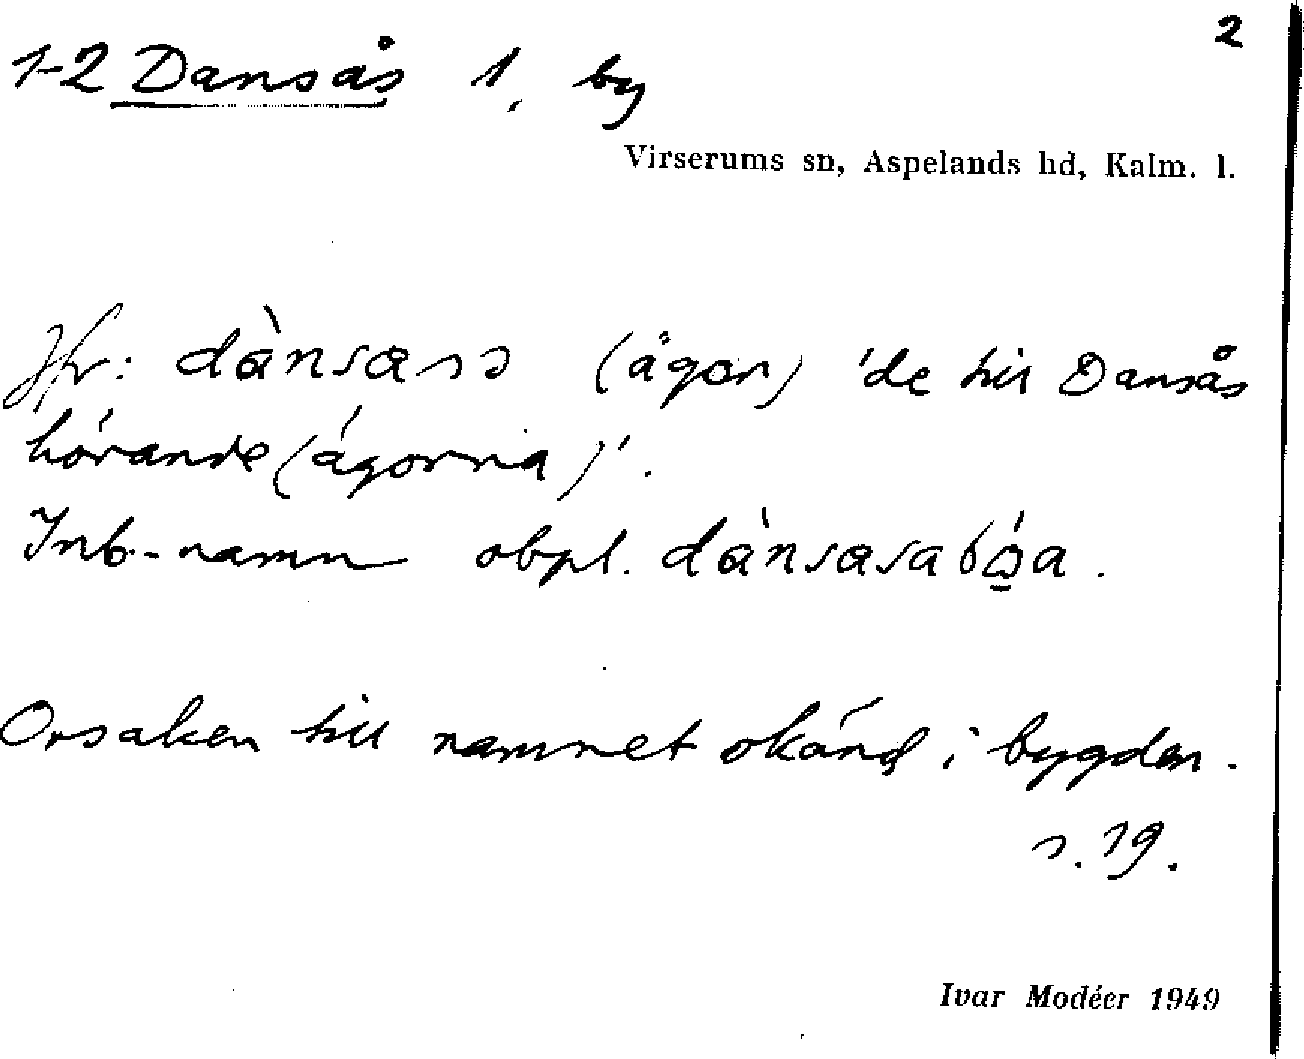 2
1-2 Dansås 1, by
Virserums sn, Aspelands hd, Kalm. l.
Jfr: dànsass (ägor) 'de till Dansås
hörande (ägorna)'.
Inb.-namn obpl.
Orsaken till namnet okänd i bygden.
s. 19.
Ivar Modéer 1949